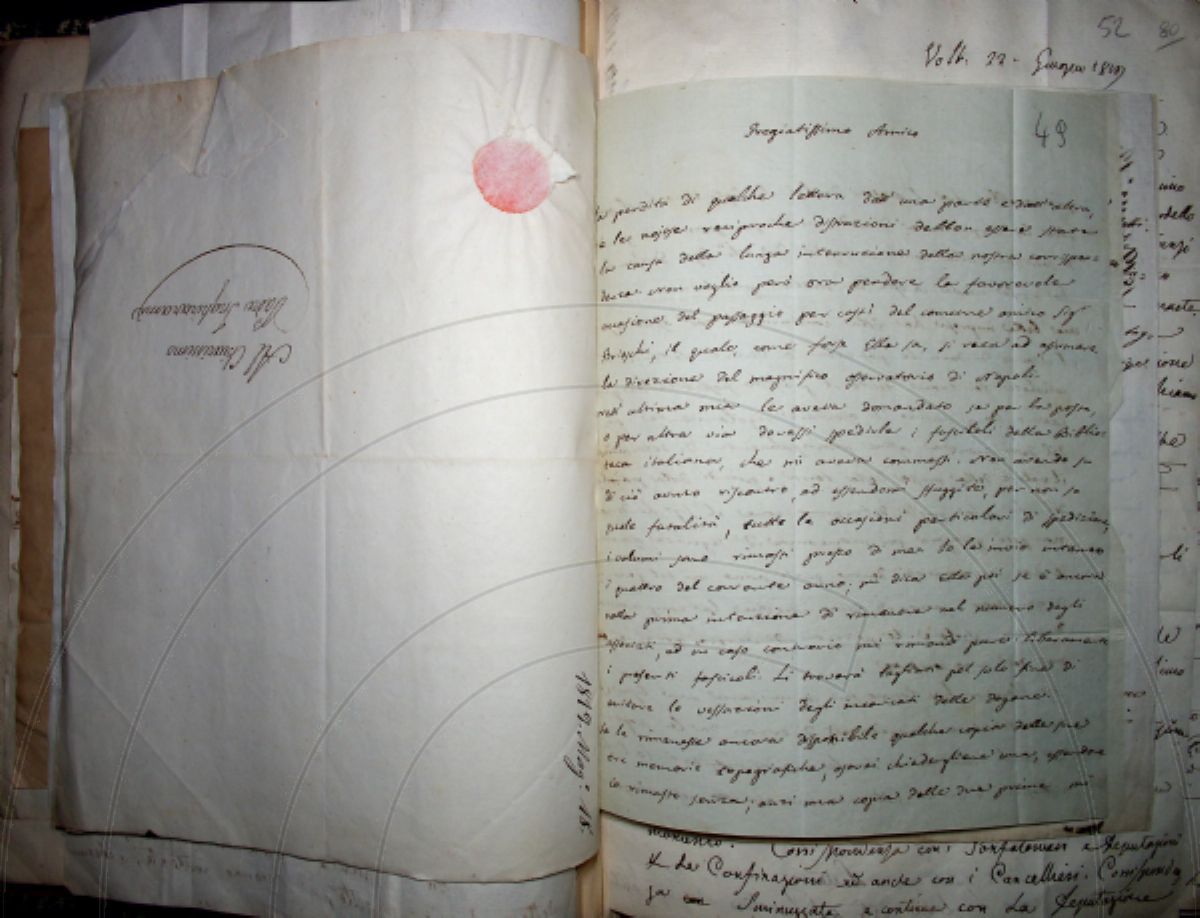 Al Chiarissimo
Padre Inghirami
1819. Mag: 18.
52 80
Volt. 22 - Giugno 1819
49
Pregiatissimo Amico
La perdita di qualche lettera dall'una parte e dall'altra,
e le nostre reciproche distrazioni debbon essere state
la causa della lunga interruzione della nostra corrispon-
denza. Non voglio però ora perdere la favorevole
occasione del passaggio per costì del comune amico Sig.
Brioschi, il quale, come forse Ella sa, si reca ad assumere
la direzione del magnifico osservatorio di Napoli.
Nell'ultima mia le aveva domandato se per la posta,
o per altra via dovessi spedirle i fascicoli della Biblio-
teca italiana, che mi aveva commessi. Non avendo su
di ciò avuto riscontro, ed essendomi sfuggite, per non so
quale fatalità, tutte le occasioni particolari di spedizione,
i volumi sono rimasti presso di me. Io le invio intanto
i quattro del corrente anno; mi dica ella poi se è ancora
nella prima intenzione di rimanere nel numero degli
associati, ed in caso contrario mi rimandi pure liberamente
i presenti fascicoli. Li troverà tagliati pel solo fine di
evitare le vessazioni degli incaricati delle dogane.
Se le rimanesse ancora disponibile qualche copia delle sue
tre memorie topografiche, oserei chiedergliene una, essendone
io rimasto senza; anzi una copia delle due prime mi
Corrispondenza con i Gonfalonieri e Deputazioni
e da Confinazioni ed anche con i Cancellieri.
e continue con la Deputazione